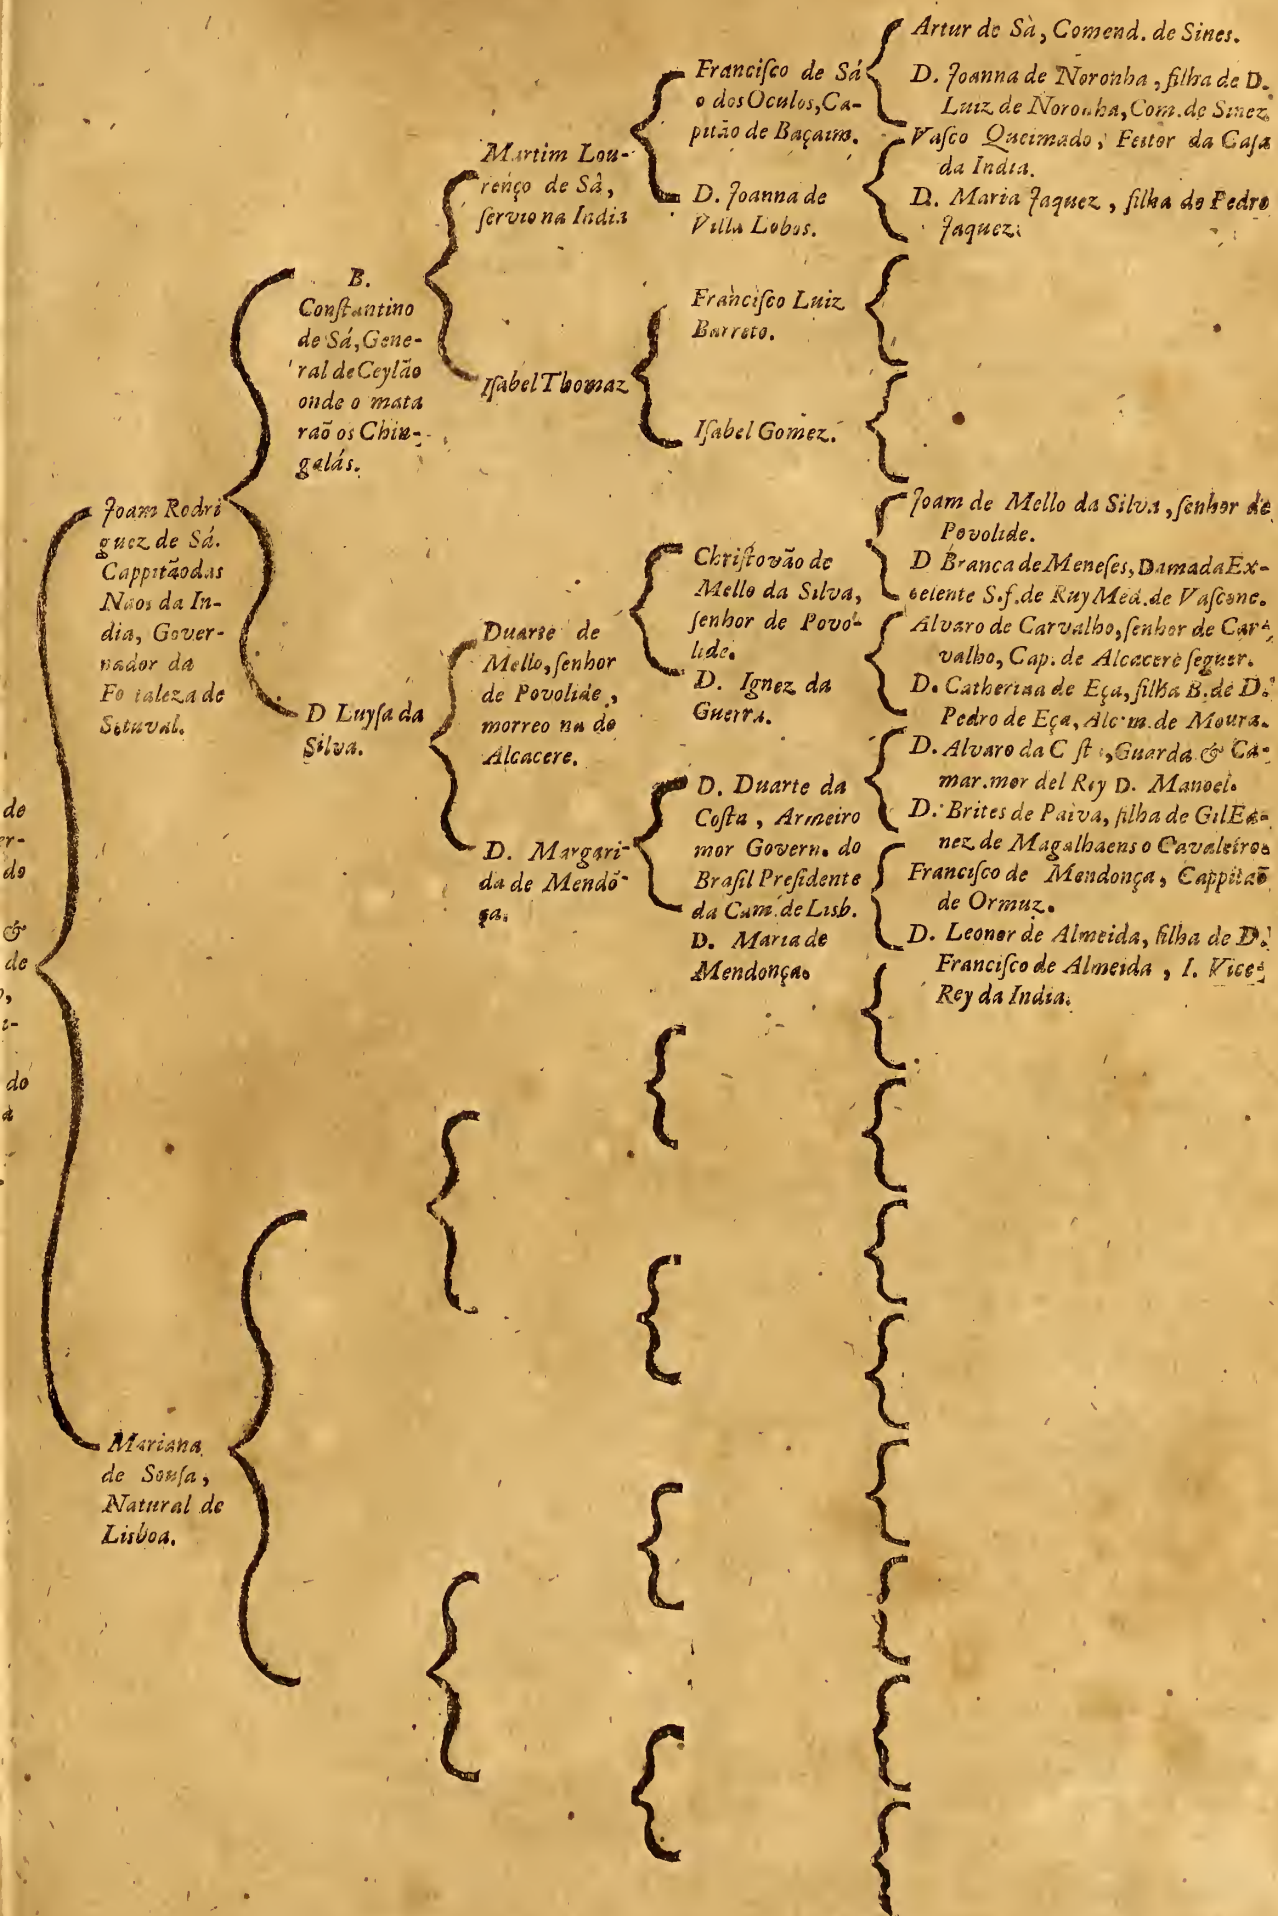 Joam Rodri
guez de Sá.
Cappitão das
Náos da In-
dia, Gover-
nador da
Fo taleza de
Setuval.
Mariana
de Sousa,
Natural de
Lisboa.
B.
Conſtantino
de Sá, Gene-
ral de Ceylão
onde o mata
raõ os Chin-
galás.
D Luyſa da
Silva.
Martim Lou-
renço de Sâ,
ſervio na India
Iſabel Thomaz
Duarte de
Mello, ſenhor
de Povolide,
morreo na de
Alcacere.
D. Margari-
da de Mendõ-
ça.
Franciſco de Sá
o dos Oculos, Ca-
pitão de Baçaim.
D. Joanna de
Villa Lobos.
Franciſco Luiz
Barreto.
Iſabel Gomez.
Chriſtovão de
Mello da Silva,
ſenhor de Povo-
lide.
D. Ignez da
Guerra.
D. Duarte da
Coſta, Armeiro
mor Govern. do
Braſil Preſidente
da Cam. de Lisb.
D. Maria de
Mendonça.
Artur de Sà, Comend. de Sines.
D. Joanna de Noronha, filha de D.
Luiz de Noronha, Com. de Sinez.
Vaſco Queimado, Feitor da Caſa
da India.
D. Maria Jaquez, filha de Pedro
Jaquez.
Joam de Mello da Silva, ſenhor de
Povolide.
D Branca de Meneſes, Dama da Ex-
celente S. f. de Ruy Med. de Vaſcone.
Alvaro de Carvalho, ſenhor de Car-
valho, Cap. de Alcacere ſeguer.
D. Catherina de Eça, filha B. de D.
Pedro de Eça, Alc. m. de Moura.
D. Alvaro da C ſt , Guarda & Ca-
mar. mor del Rey D. Manoel.
D. Brites de Paiva, filha de Gil Ea-
nez de Magalhaens o Cavaleiro.
Franciſco de Mendonça, Cappitaõ
de Ormuz.
D. Leonor de Almeida, filha de D.
Franciſco de Almeida, I. Vice-
Rey da India.
de
er-
do
&
de
do